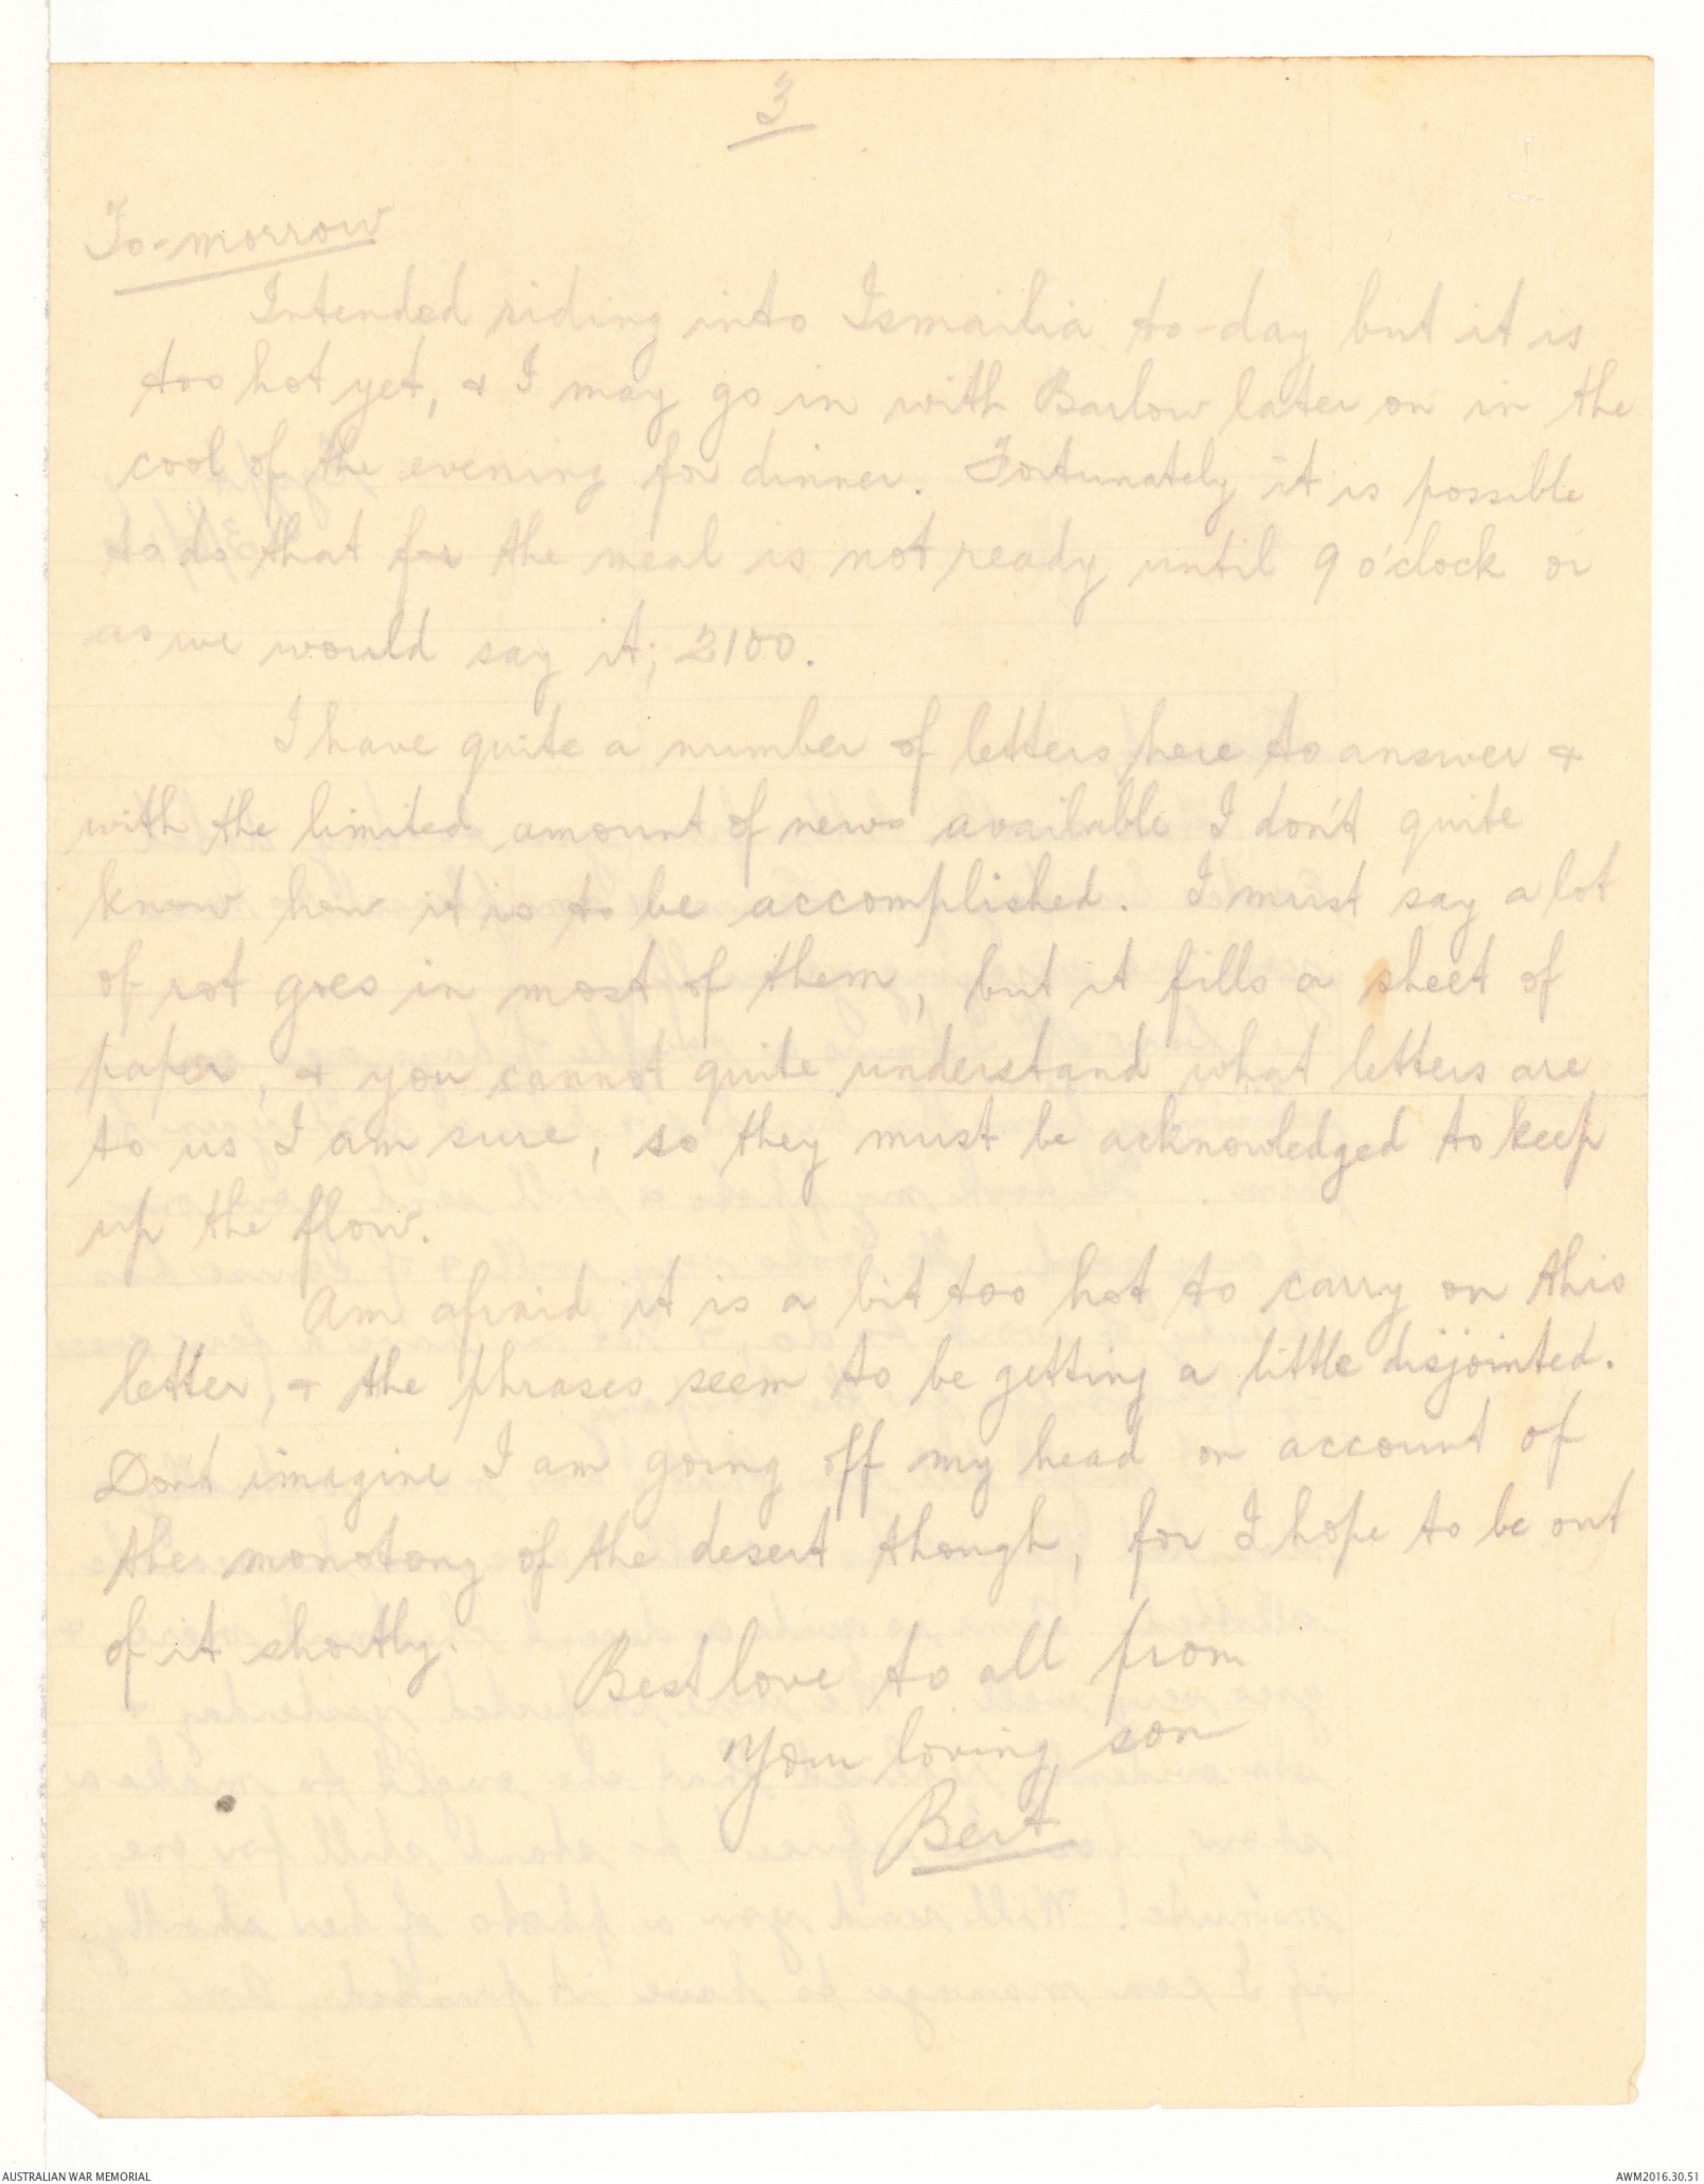 3
To-morrow
Intended riding into Ismailia to-day but it is
too hot yet, & I may go in with Barlow later on in the
cool of the evening for dinner. Fortunately it is possible
to do that for the meal is not ready until 9 o'clock or
as we would say it; 2100.
I have quite a number of letters here to answer &
with the limited amount of news available I don't quite
know how it is to be accomplished. I must say a lot
of rot goes in most of them, but it fills a sheet of
paper, & you cannot quite understand what letters are
to us I am sure, so they must be acknowledged to keep
up the flow.
Am afraid it is a bit too hot to carry on this
letter, & the phrases seem to be getting a little disjointed.
Don't imagine I am going off my head on account of
the monotony of the desert though, for I hope to be out
of it shortly.
Best love to all from
Your loving son
Bert
AUSTRALIAN WAR MEMORIAL
AWM2016.30.51